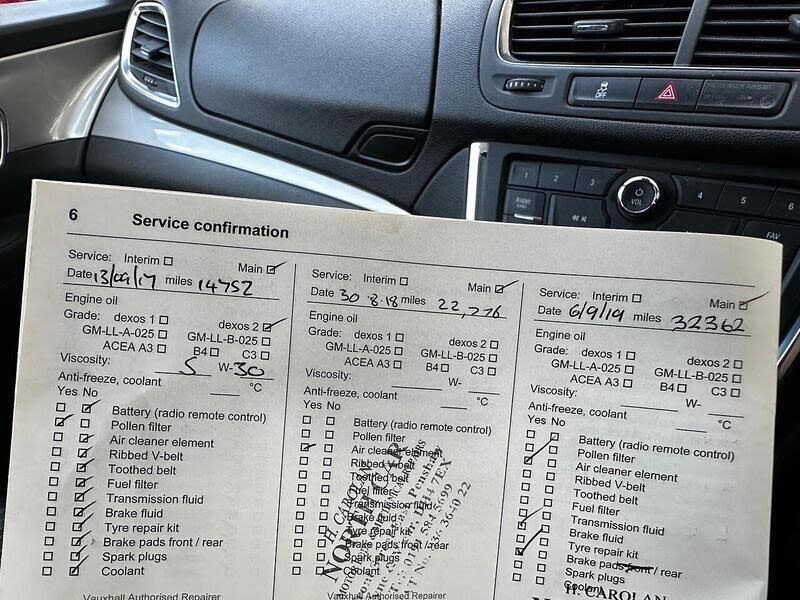 6 Service confirmation
Service: Interim Main
Date 13/09/17 miles 14752
Engine oil
Grade: dexos 1 dexos 2
GM-LL-A-025 GM-LL-B-025
ACEA A3 B4 C3
Viscosity: 5 W-30
Anti-freeze, coolant °C
Yes No
Battery (radio remote control)
Pollen filter
Air cleaner element
Ribbed V-belt
Toothed belt
Fuel filter
Transmission fluid
Brake fluid
Tyre repair kit
Brake pads front / rear
Spark plugs
Coolant
Vauxhall Authorised Repairer
Service: Interim Main
Date 30.8.18 miles 22,776
Engine oil
Grade: dexos 1 dexos 2
GM-LL-A-025 GM-LL-B-025
ACEA A3 B4 C3
Viscosity: W-
Anti-freeze, coolant °C
Yes No
Battery (radio remote control)
Pollen filter
Air cleaner element
Ribbed V-belt
Toothed belt
Fuel filter
Transmission fluid
Brake fluid
Tyre repair kit
Brake pads front / rear
Spark plugs
Coolant
Vauxhall Authorised Repairer
H. CAROLAN
Penshaw
Service: Interim Main
Date 6/9/19 miles 32362
Engine oil
Grade: dexos 1 dexos 2
GM-LL-A-025 GM-LL-B-025
ACEA A3 B4 C3
Viscosity: W-
Anti-freeze, coolant °C
Yes No
Battery (radio remote control)
Pollen filter
Air cleaner element
Ribbed V-belt
Toothed belt
Fuel filter
Transmission fluid
Brake fluid
Tyre repair kit
Brake pads front / rear
Spark plugs
Coolant
H. CAROLAN
OFF
1 2 3 4 5 6
RADIO
VOL
FAV